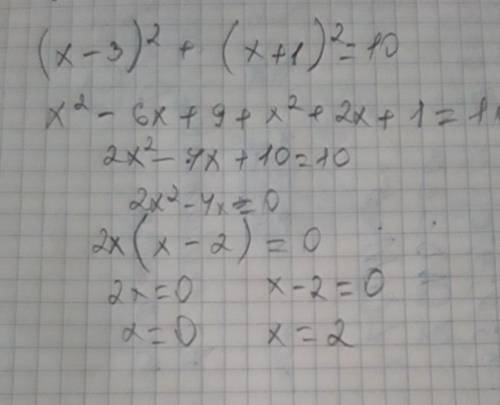 (x-3)² + (x+1)² = 10
x² - 6x + 9 + x² + 2x + 1 = 1
2x² - 4x + 10 = 10
2x² - 4x = 0
2x(x - 2) = 0
2x = 0 x - 2 = 0
x = 0 x = 2